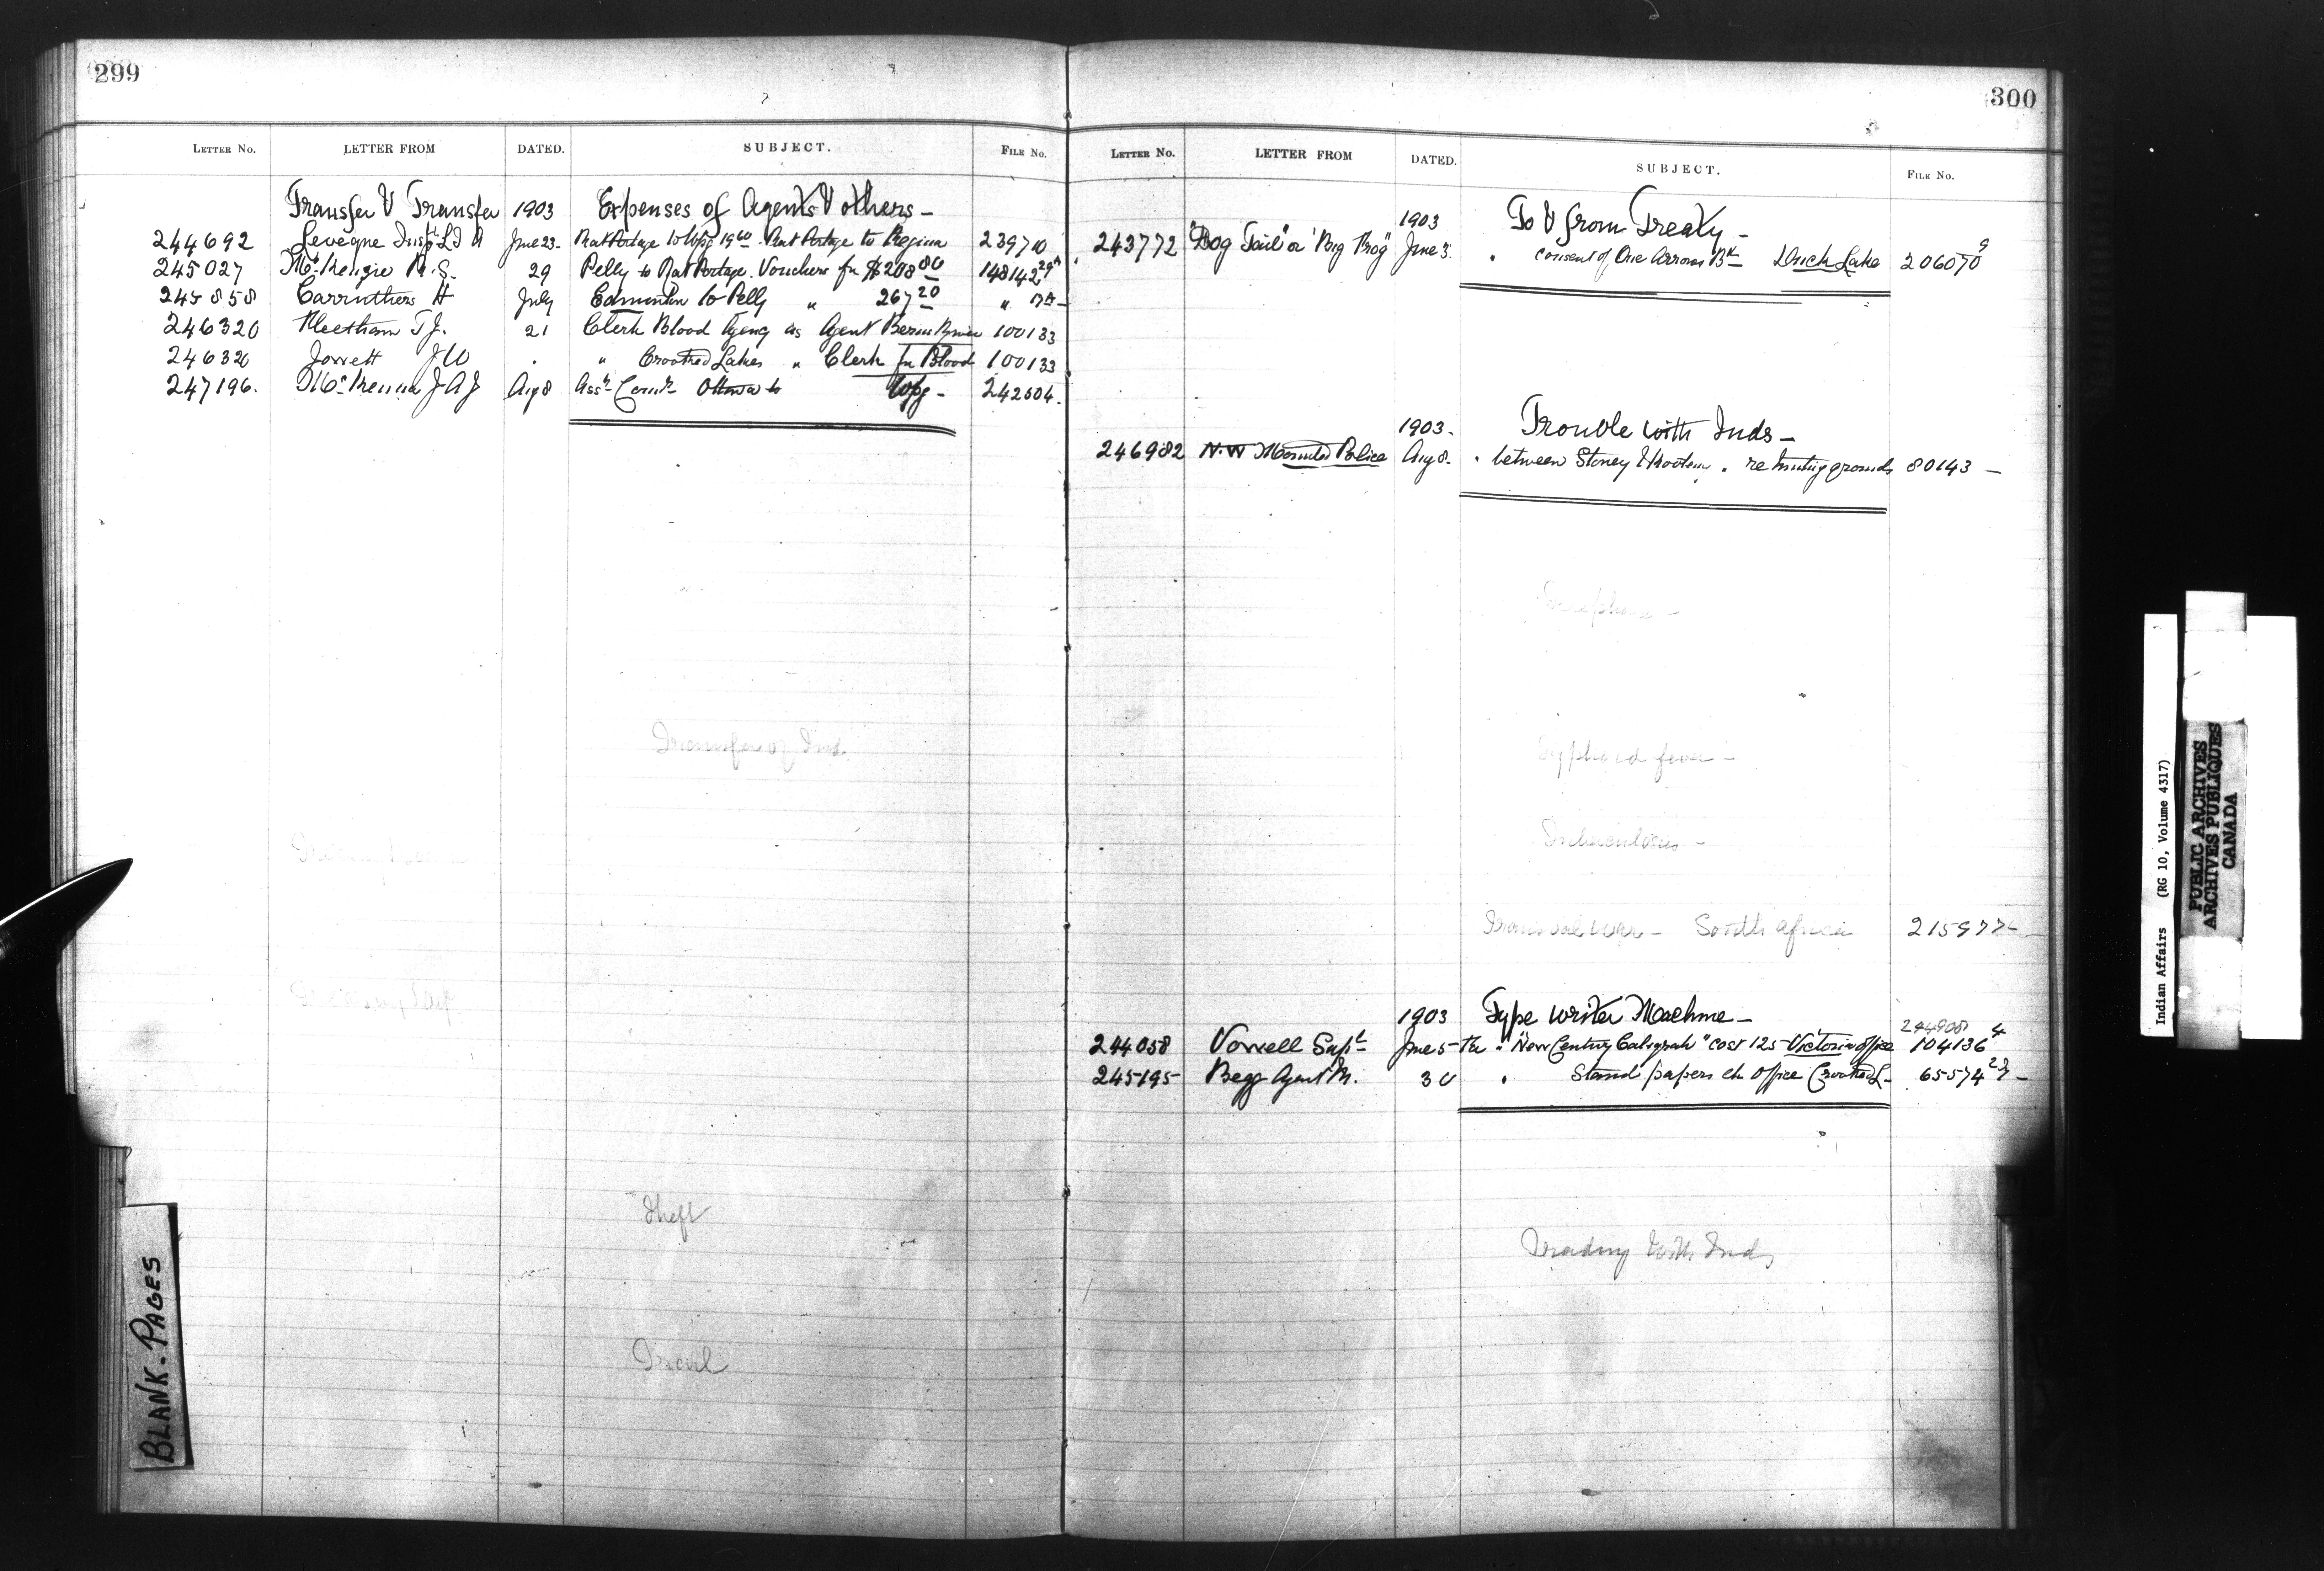 299
LETTER NO. LETTER FROM DATED. SUBJECT. FILE NO.
Transfer & Transfer 1903 Expenses of Agents & others -
244692 Leveque Insp L I A June 23 - Rat Portage to Wpg 19 60 - Rat Portage to Regina 239710
245027 McKenzie R. S. 29 Pelly to Rat Portage. Vouchers for $208 80 148142 29A
245858 Carruthers H July Edmonton to Pelly " 267 20 "
246320 Fleetham T J. 21 Clerk Blood Agency as Agent 100133
246320 Jowett J W . " Crooked Lakes " Clerk for Blood 100133
247196. McKenna J A J Aug 8 Asst Comr Ottawa to Wpg - 242504.
Transfer of Inds.
Theft
BLANK - PAGES
300
LETTER NO. LETTER FROM DATED. SUBJECT. FILE NO.
1903 To & from Treaty -
243772 "Dog Tail" or June 3. " consent of One Arrows Bd Duck Lake 206070 9
1903 - Trouble with Inds -
246982 N. W Mounted Police Aug 8 - " between Stoney & Kootenay . re hunting grounds 80143 -
Typhoid fever -
Tuberculosis -
Transvaal war - South Africa 215977 -
1903 Type writer Machine -
244908
244058 Vowell Supt June 5 - The " "New Century Caligraph" cost 125 - Victoria office 104136 4
245195 Begg Agent M. 30 " Stand papers etc office Crooked L - 65574 27 -
Trading with Inds
Indian Affairs (RG 10, Volume 4317)
PUBLIC ARCHIVES
ARCHIVES PUBLIQUES
CANADA